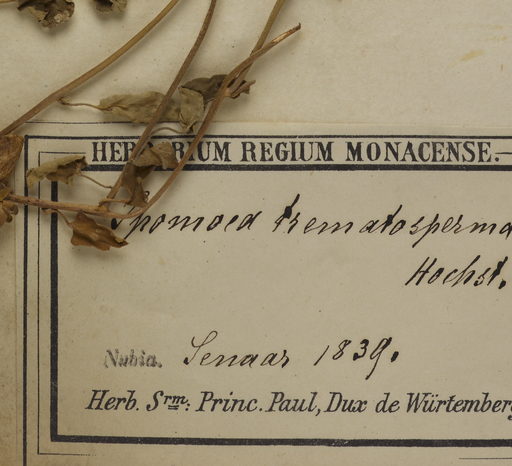 HERBARIUM REGIUM MONACENSE.
Ipomoea trematosperma
Hochst.
Nubia. Senaar 1839.
Herb. Srm: Princ. Paul, Dux de Würtemberg